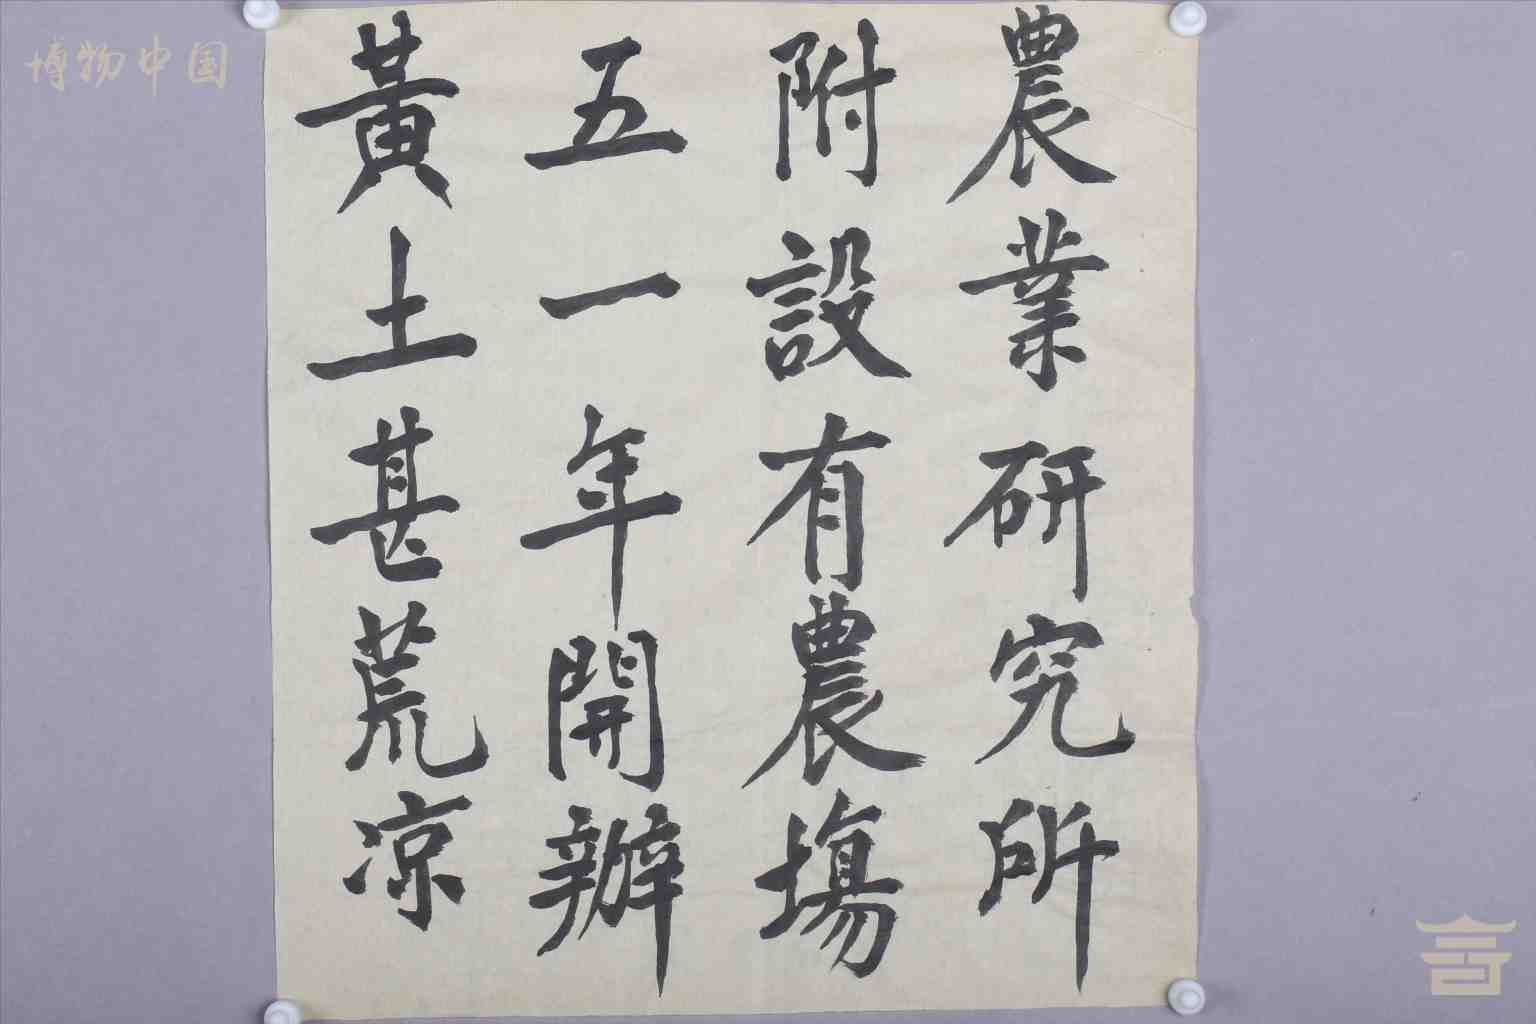 農業研究所
附設有農場
五一年開辦
黃土甚荒凉
博物中国